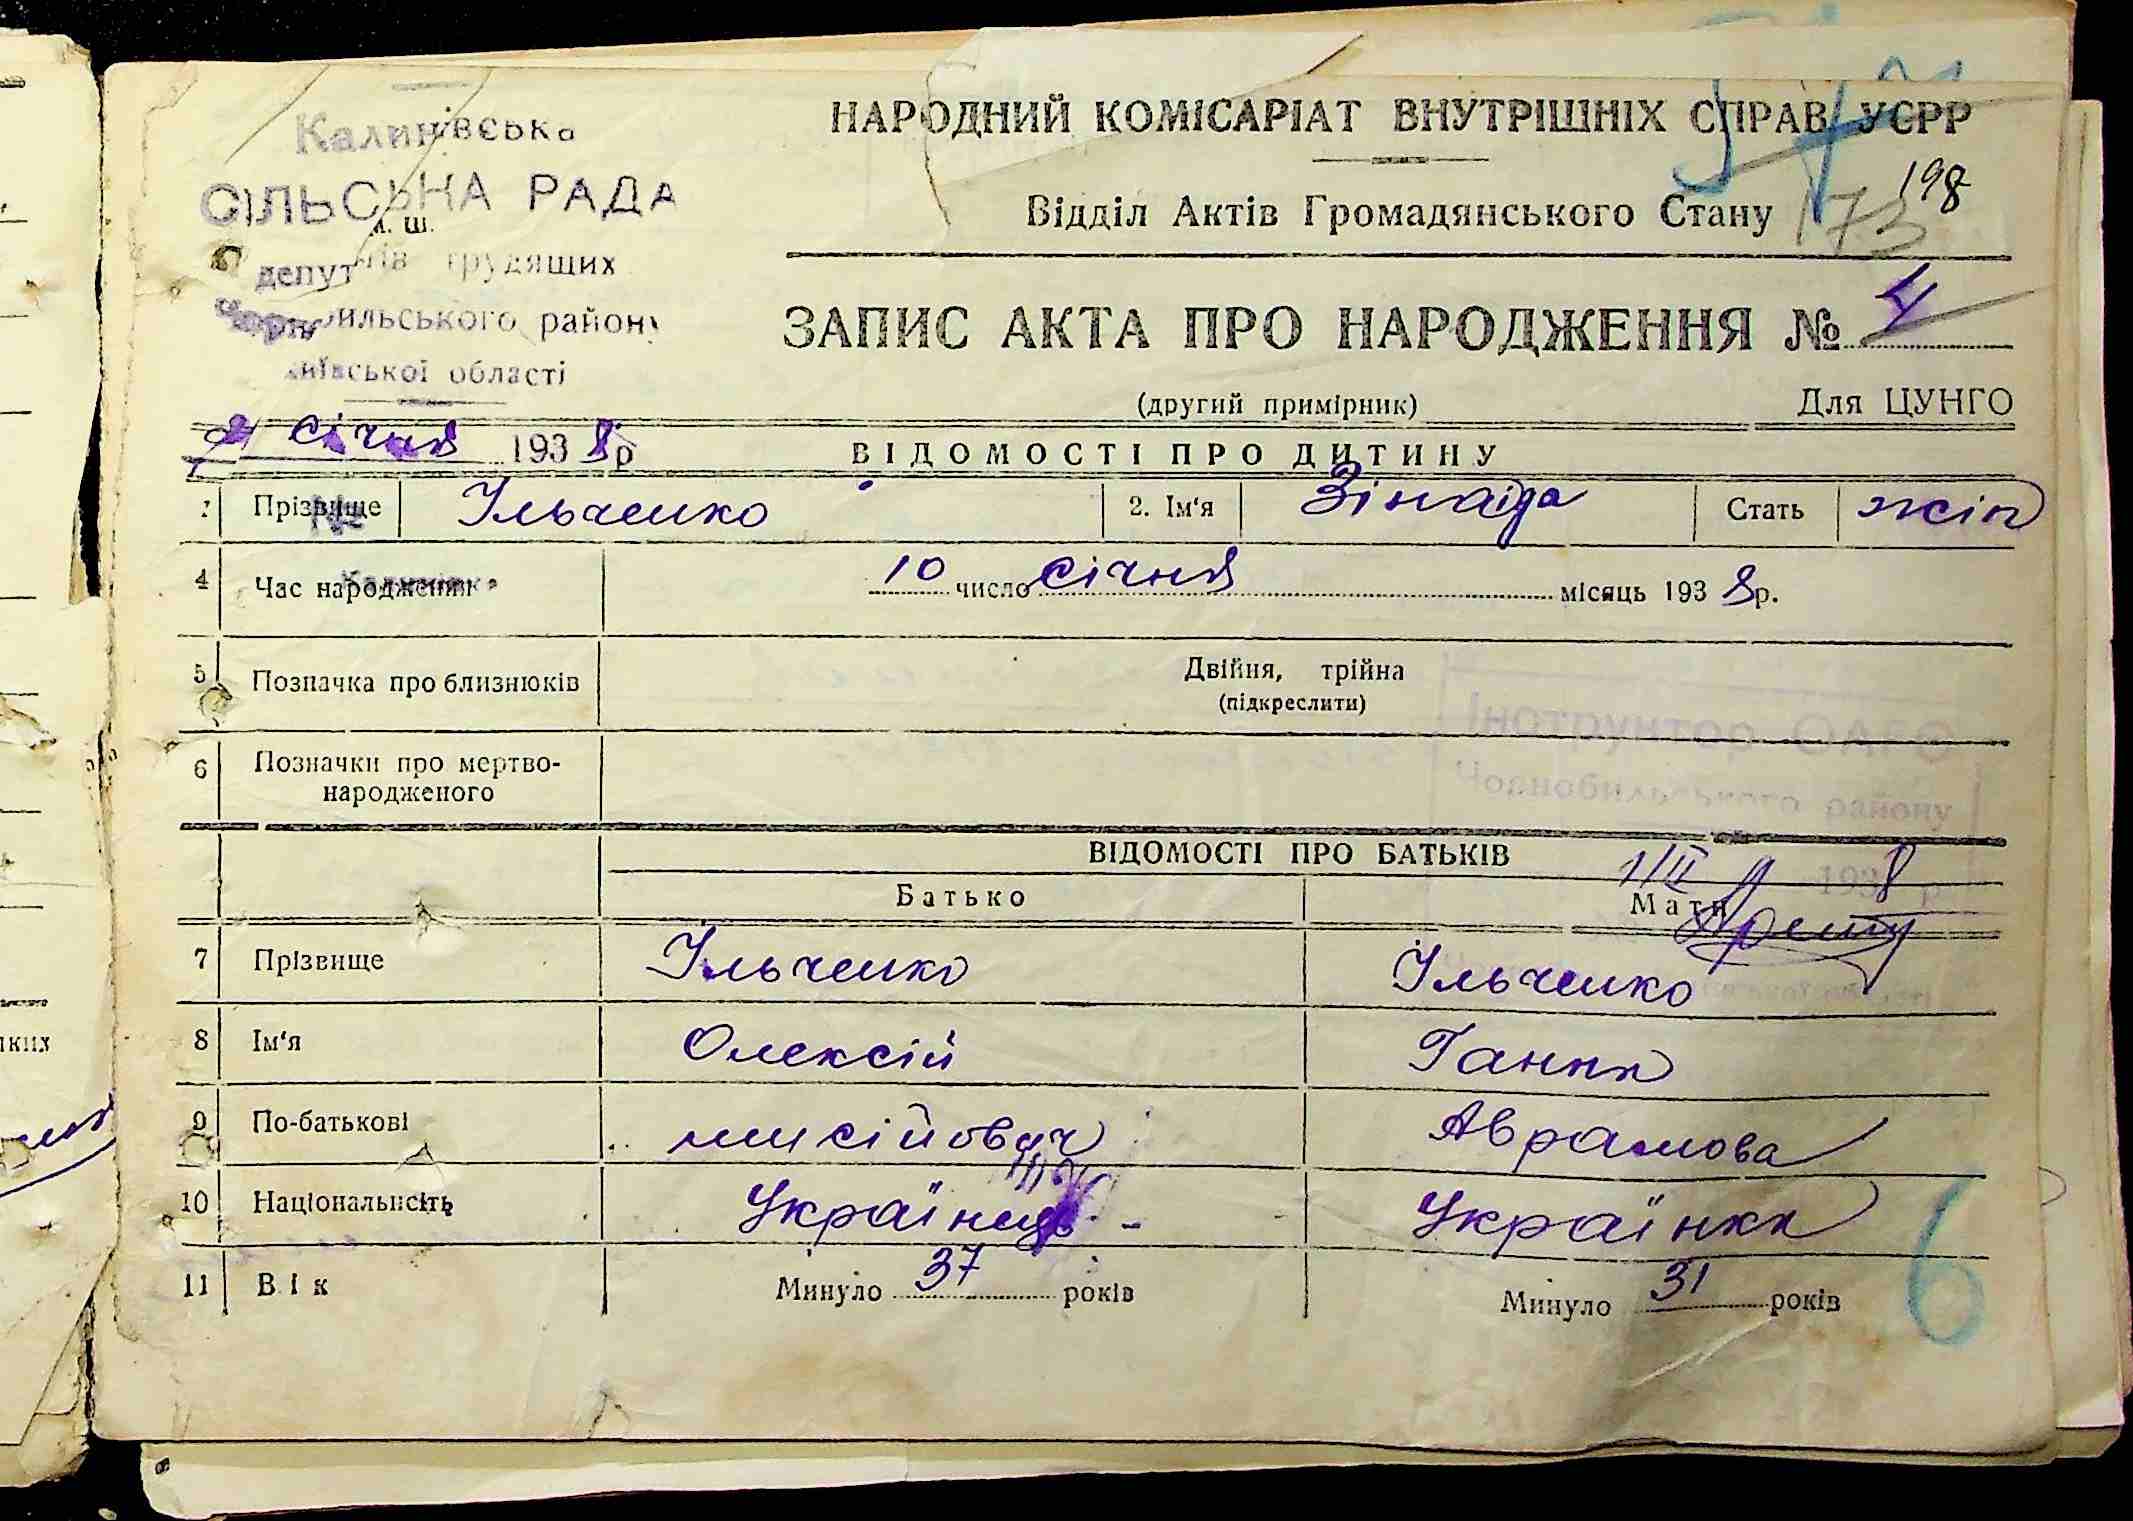 Калинівська
СІЛЬСЬКА РАДА
депутатів трудящих
Чорнобильського району
Київської області
НАРОДНИЙ КОМІСАРІАТ ВНУТРІШНІХ СПРАВ УСРР
198
Відділ Актів Громадянського Стану 173
ЗАПИС АКТА ПРО НАРОДЖЕННЯ № 4
(другий примірник) Для ЦУНГО
січня 1938 р
ВІДОМОСТІ ПРО ДИТИНУ
1 Прізвище Ільченко 2. Ім'я Зінаїда Стать жін
4 Час народження 10 число січня місяць 1938 р.
5 Позначка про близнюків Двійня, трійна
(підкреслити)
Інструктор ОАГС
Чорнобильського району
6 Позначки про мертво-
народженого
ВІДОМОСТІ ПРО БАТЬКІВ
1/II 1938 р
Батько Мати
7 Прізвище Ільченко Ільченко
8 Ім'я Олексій Ганна
9 По-батькові мисійович Аврамова
10 Національність Українець Українка
11 Вік Минуло 37 років Минуло 31 років
6